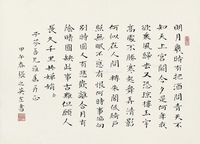 明月幾時有把酒問青天不
知天上宮闕今夕是何年我
欲乘風歸去又恐瓊樓玉宇
高處不勝寒起舞弄清影
何似在人間轉朱閣低綺戶
照無眠不應有恨何時事偏向
別時圓人有悲歡離合月有
陰晴圓缺此事古難全但願人
長久千里共嬋娟
甲午春